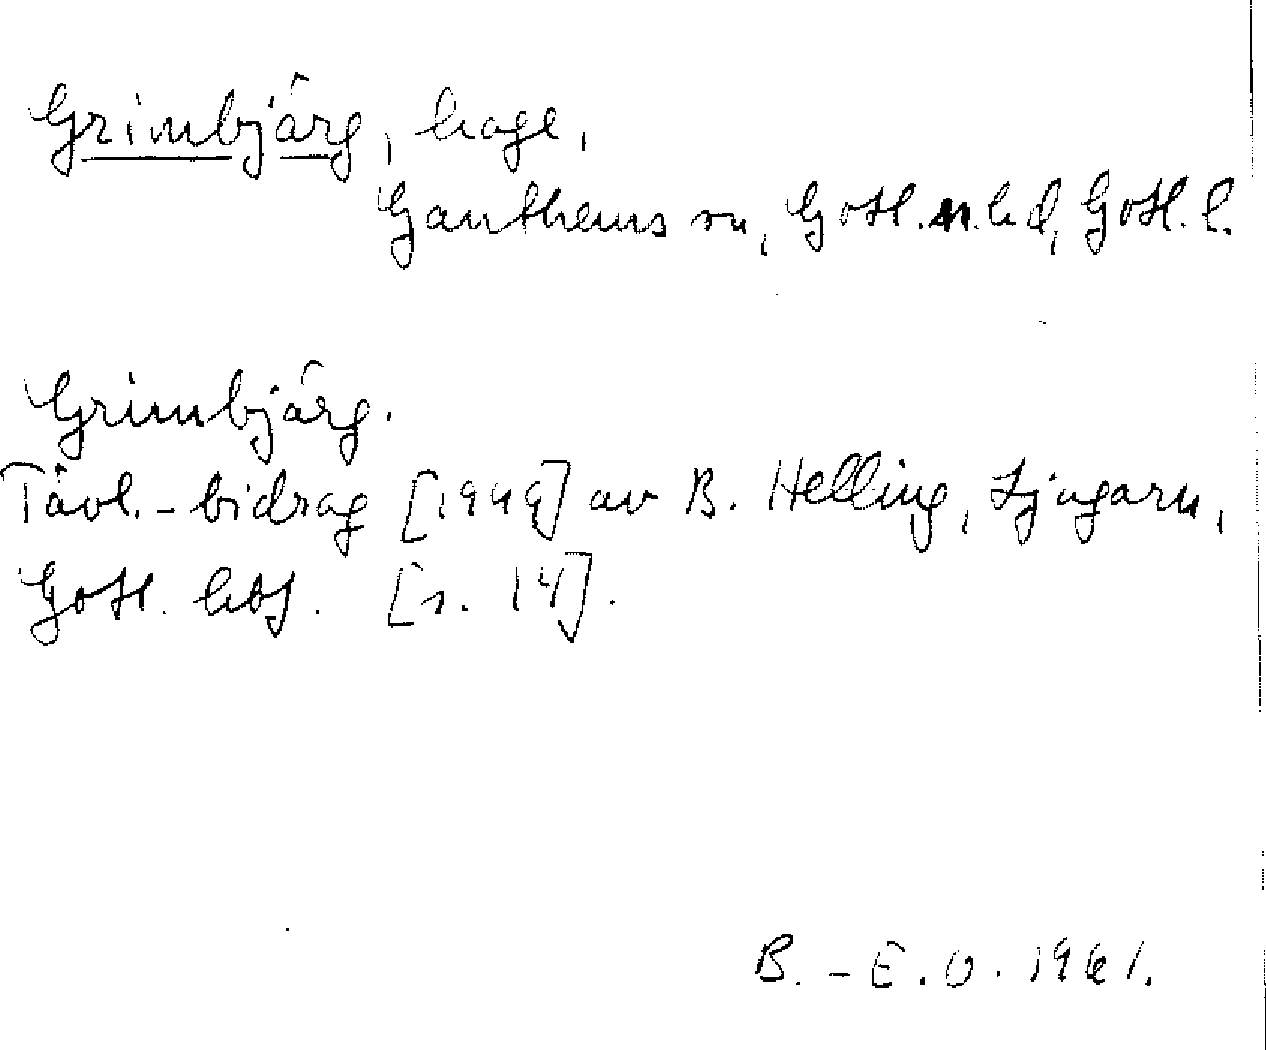 Grimbjärg, hage,
Ganthems sn, Gotl. n. hd, Gotl. l.
Grimbjärg.
Tävl.-bidrag [1949] av B. Helling, Ljugarn,
Gotl. hbf. [s. 14].
B.-E.O. 1961.